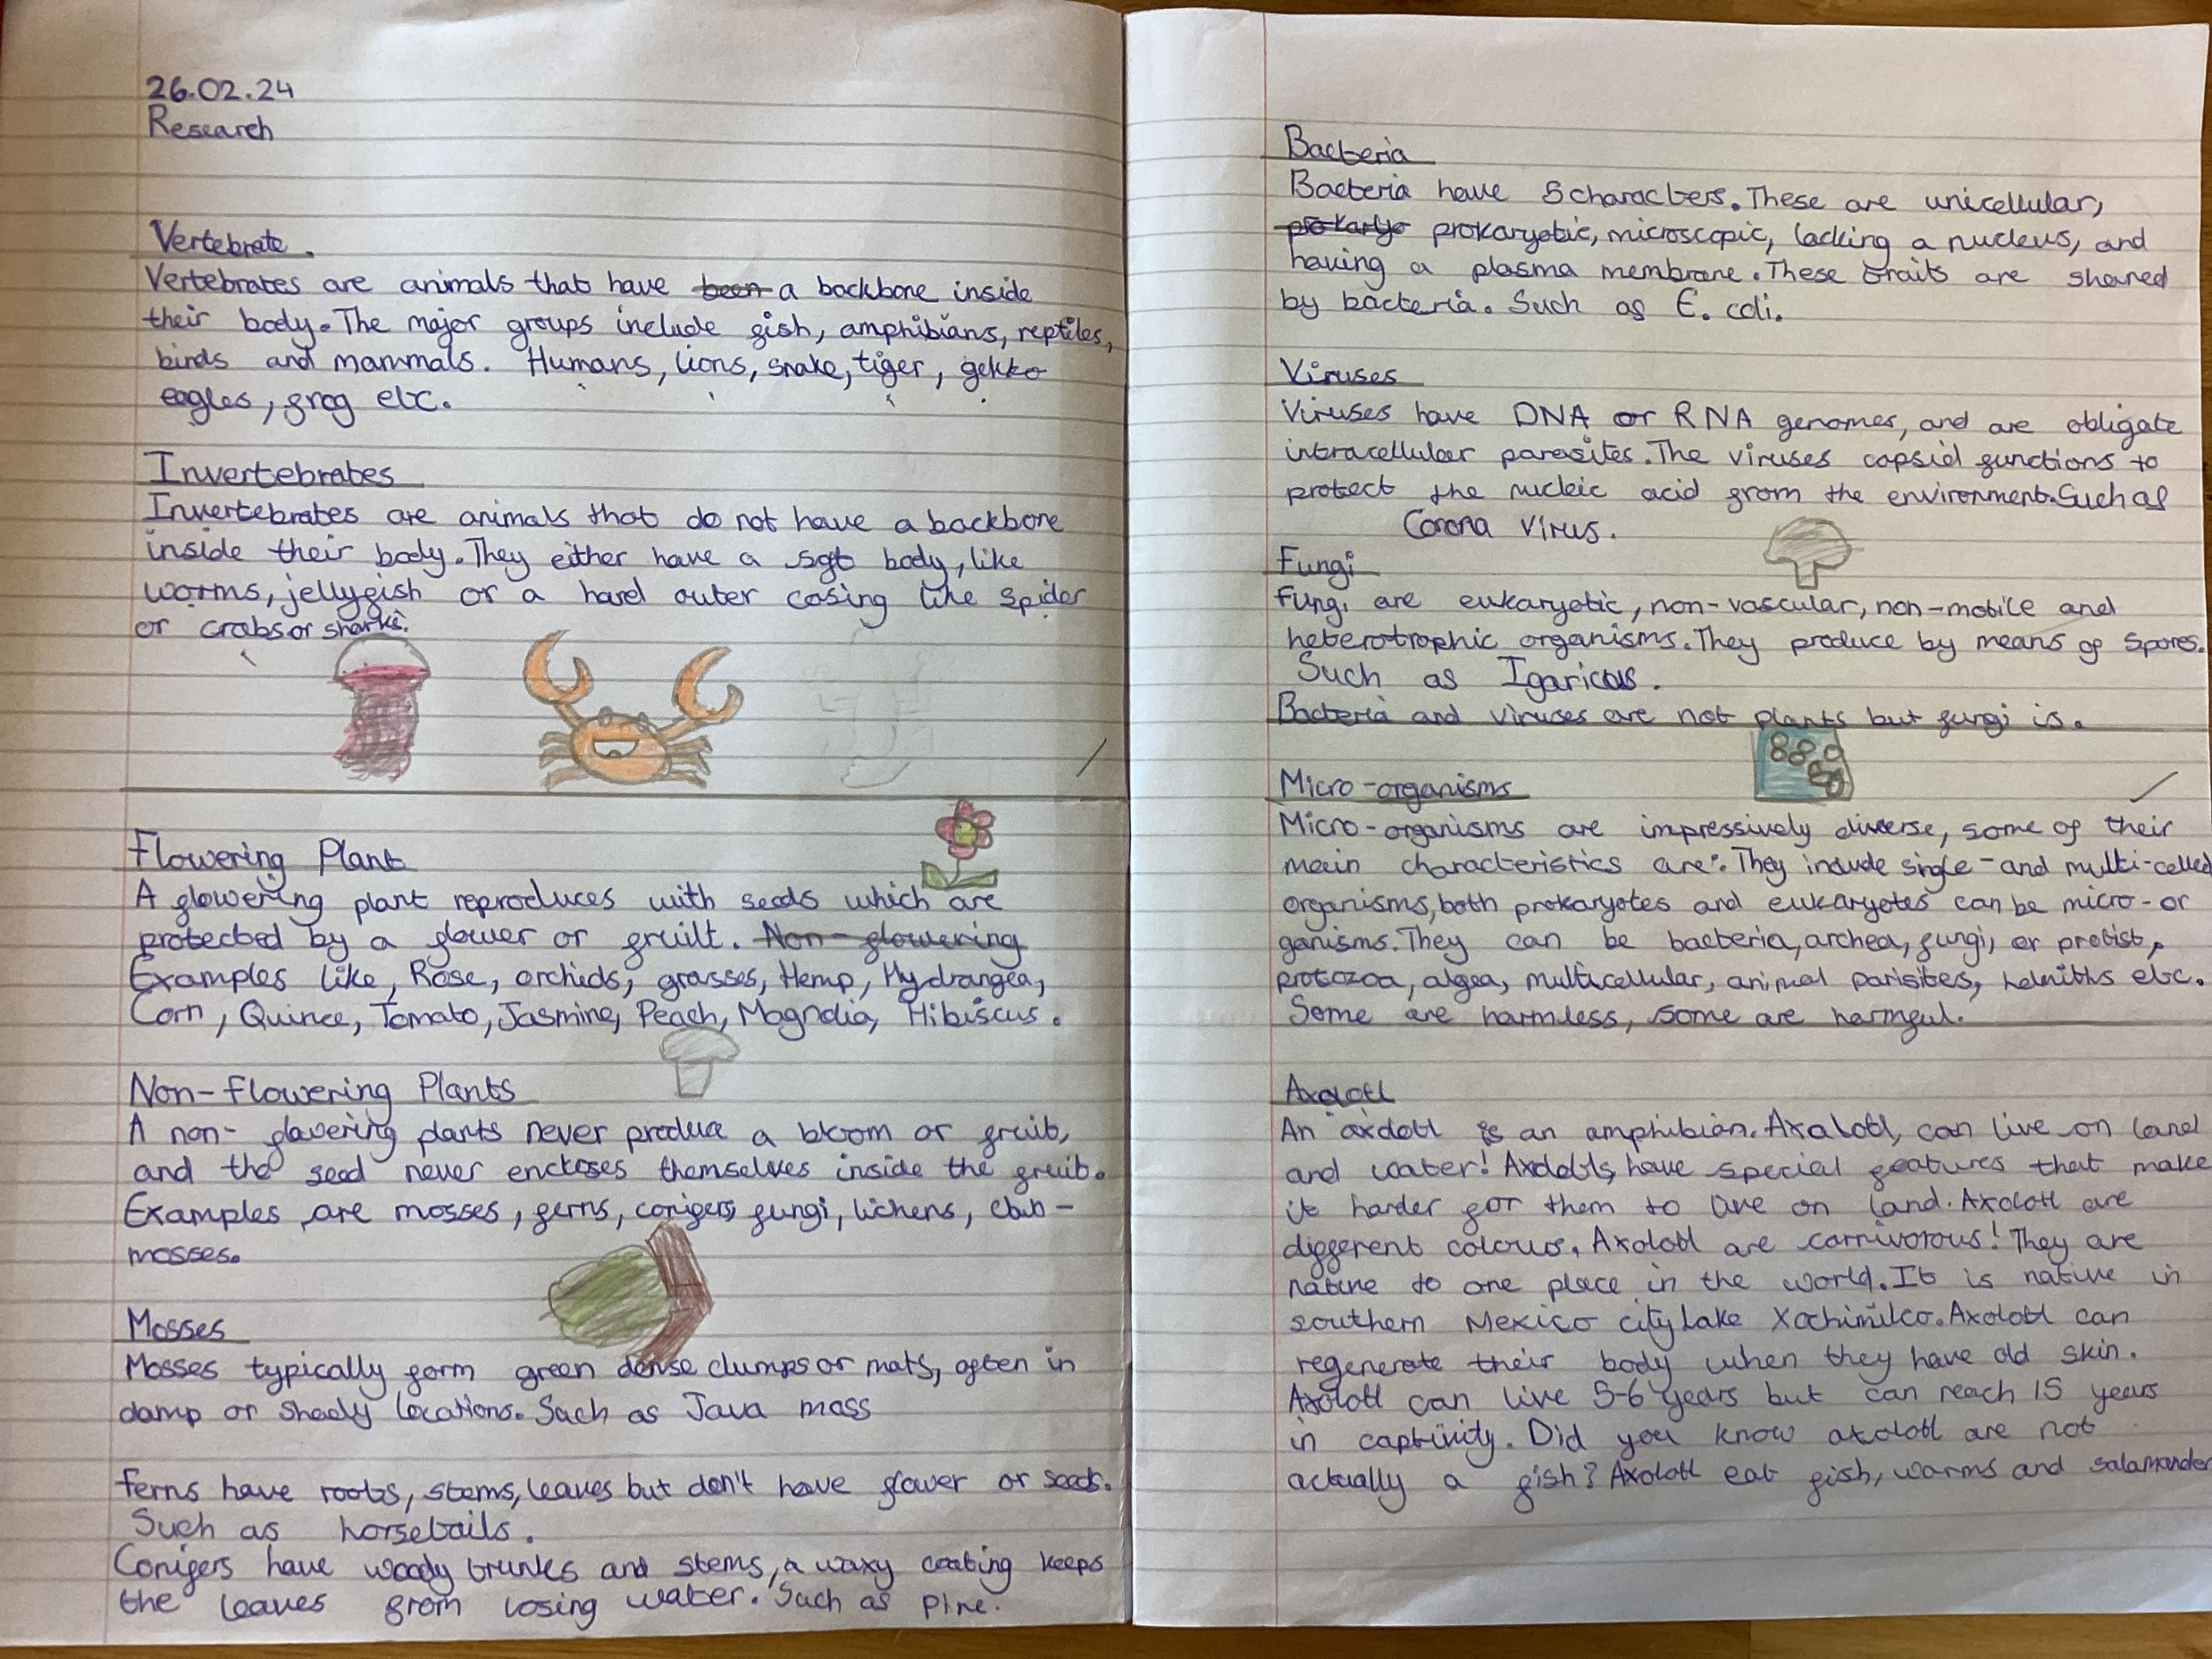 26.02.24
Research
Vertebrate.
Vertebrates are animals that have been a backbone inside
their body. The major groups include fish, amphibians, reptiles,
birds and mammals. Humans, lions, snake, tiger, gekko
eagles, frog etc.
Invertebrates
Invertebrates are animals that do not have a backbone
inside their body. They either have a soft body, like
worms, jellyfish or a hard outer casing like spider
or crabs or sharks.
Flowering Plant
A flowering plant reproduces with seeds which are
protected by a flower or fruilt. Non-flowering
Examples like, Rose, orchids, grasses, Hemp, Hydrangea,
Corn, Quince, Tomato, Jasmine, Peach, Magnolia, Hibiscus.
Non-flowering Plants
A non-flowering plants never produce a bloom or fruit,
and the seed never encloses themselves inside the fruit.
Examples are mosses, ferns, conifers, fungi, lichens, club-
mosses.
Mosses
Mosses typically form green dense clumps or mats, often in
damp or shady locations. Such as Java moss
Ferns have roots, stems, leaves but don't have flower or seeds.
Such as horsetails.
Conifers have woody trunks and stems, a waxy coating keeps
the leaves from losing water. Such as pine.
Bacteria
Bacteria have 5 characters. These are unicellular,
prokaryo prokaryotic, microscopic, lacking a nucleus, and
having a plasma membrane. These traits are shared
by bacteria. Such as E. coli.
Viruses
Viruses have DNA or RNA genomes, and are obligate
intracellular parasites. The viruses capsid functions to
protect the nucleic acid from the environment. Such as
Corona Virus.
Fungi
Fungi are eukaryotic, non-vascular, non-motile and
heterotrophic organisms. They produce by means of spores.
Such as Igaricus.
Bacteria and viruses are not plants but fungi is.
Micro-organisms
Micro-organisms are impressively diverse, some of their
main characteristics are: They include single-and multi-celled
organisms, both prokaryotes and eukaryotes can be micro-or
ganisms. They can be bacteria, archea, fungi, or protist,
protozoa, algea, multicellular, animal parisites, helmiths etc.
Some are harmless, some are harmful.
Axolotl
An axolotl is an amphibian. Axalotl, can live on land
and water! Axolotls, have special features that make
it harder for them to live on land. Axolotl are
different colours. Axolotl are carnivorous! They are
native to one place in the world. It is native in
southern Mexico city Lake Xochimilco. Axolotl can
regenerate their body when they have old skin.
Axolotl can live 5-6 years but can reach 15 years
in captivity. Did you know axolotl are not
actually a fish? Axolotl eat fish, worms and salamander